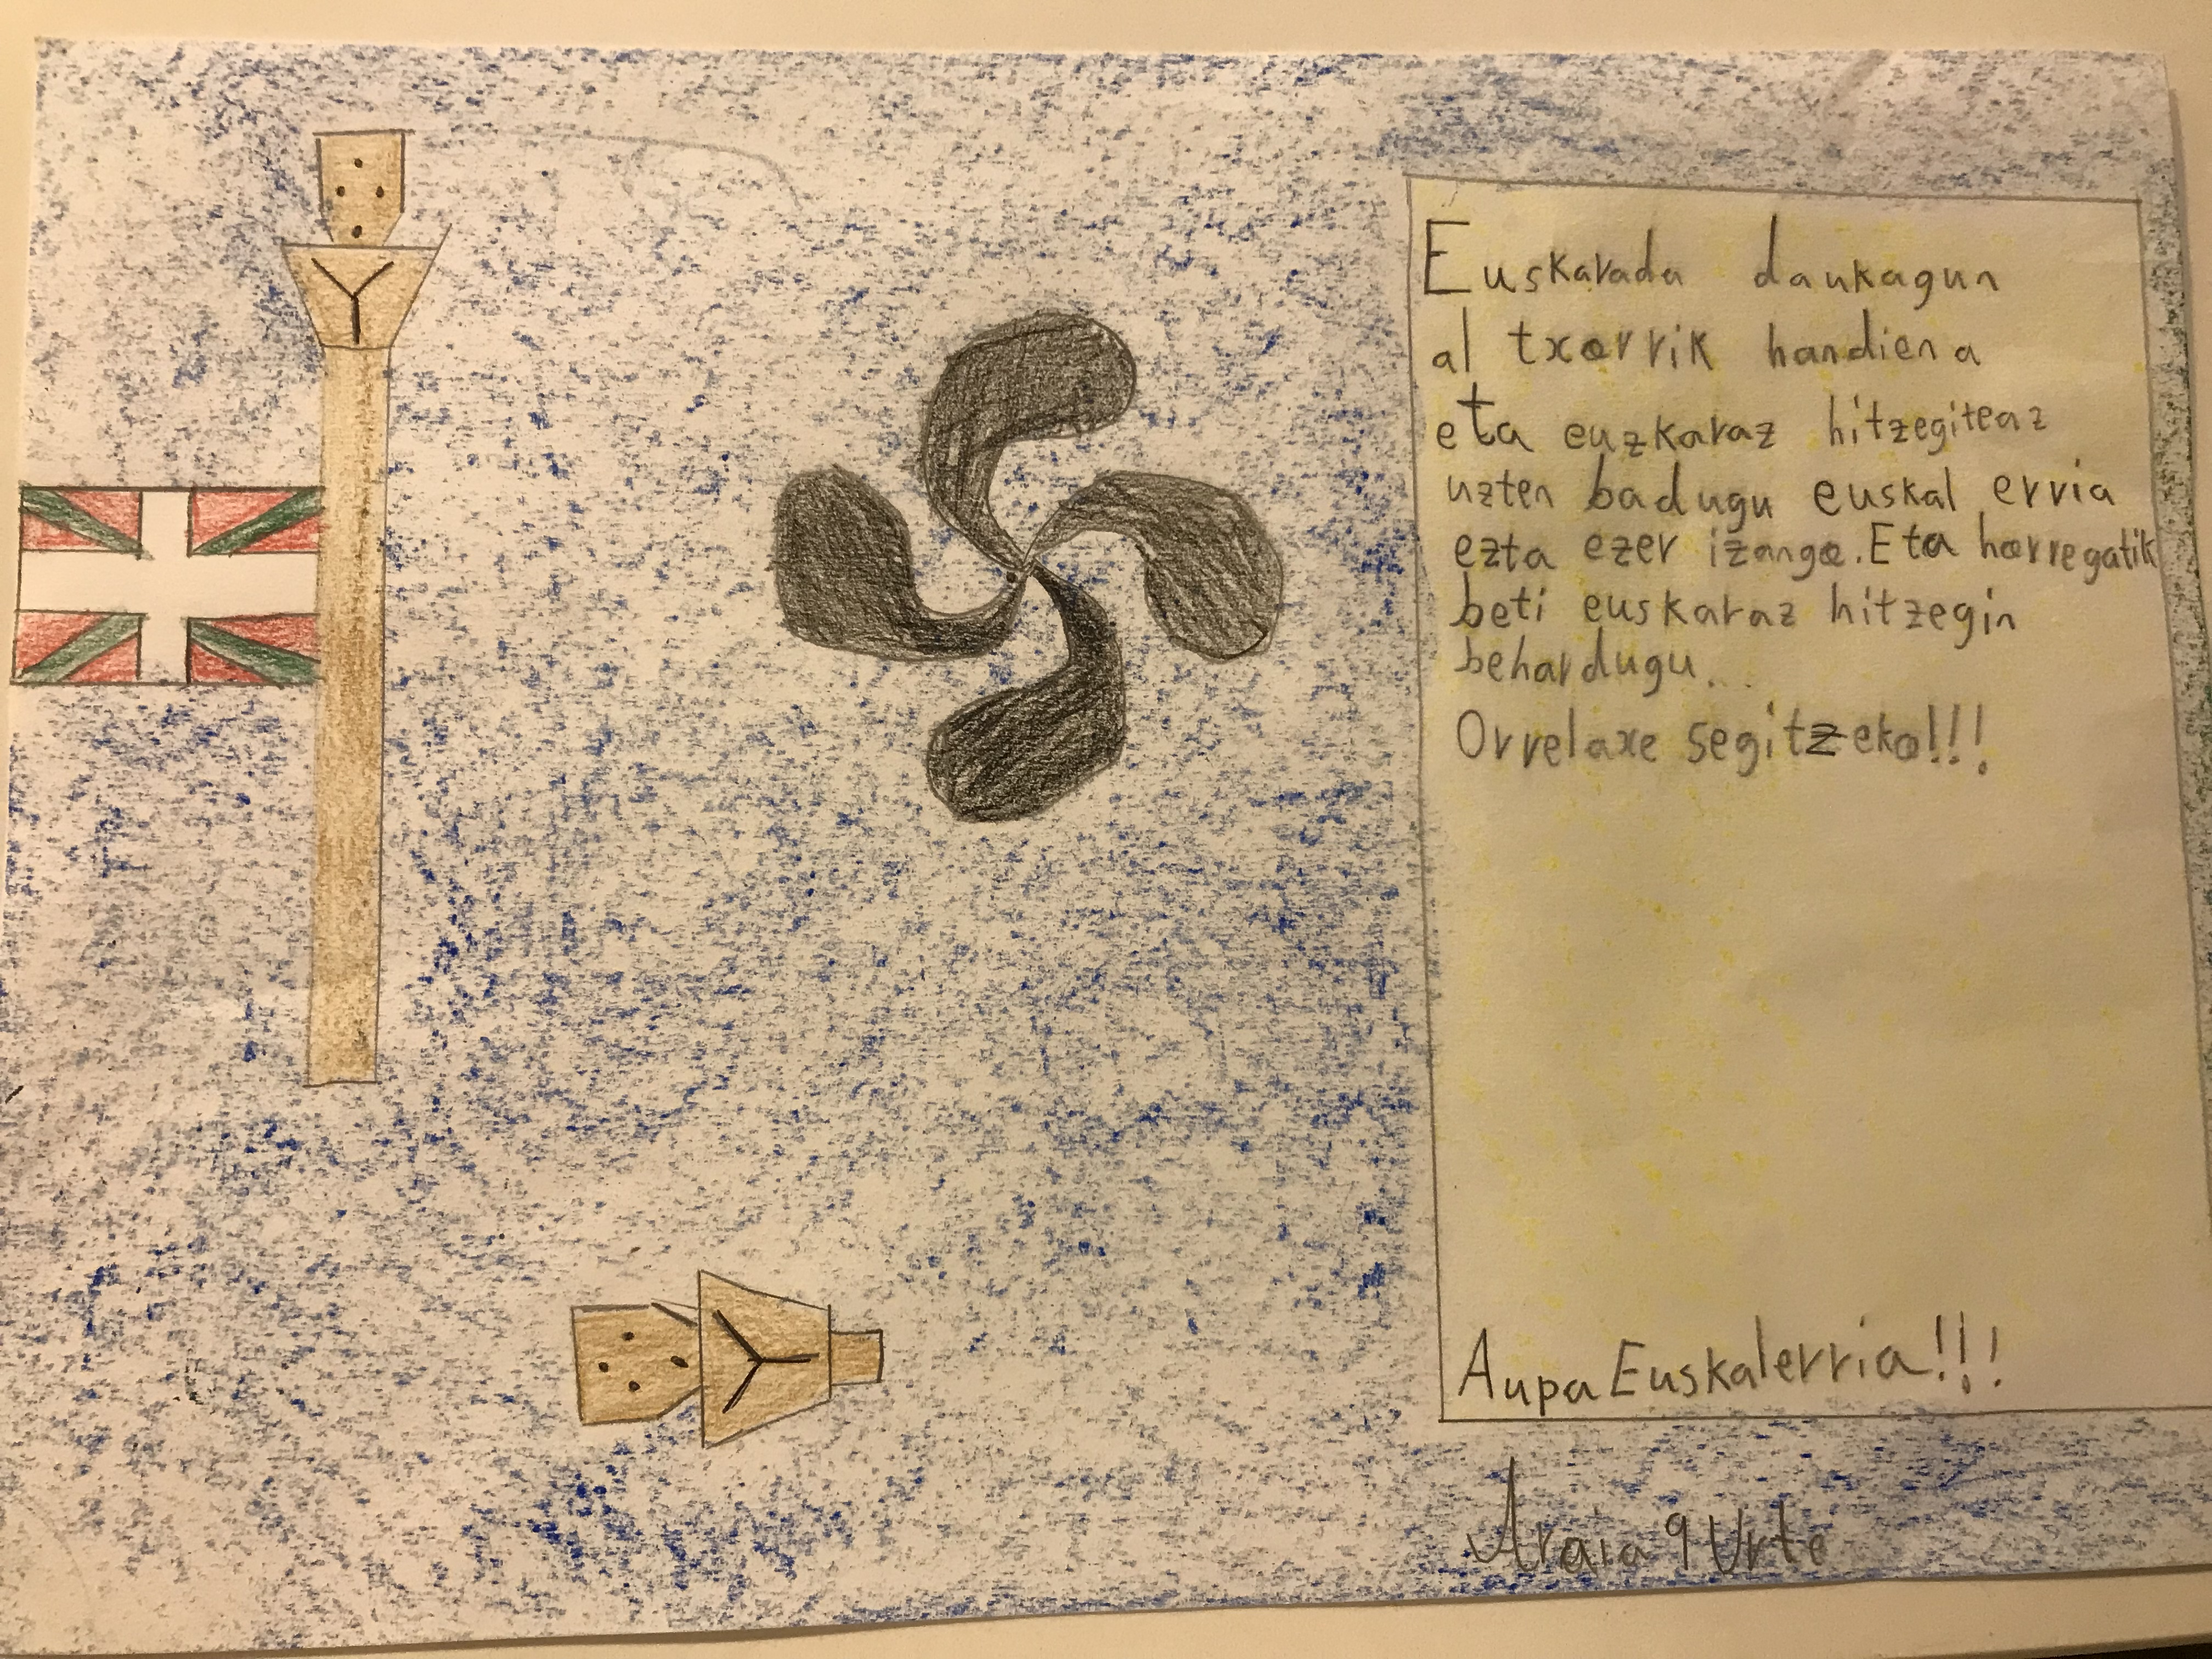 Euskarada daukagun
al txorrik handiena
eta euzkaraz hitzegiteaz
uzten badugu euskal erria
ezta ezer izango. Eta horregatik
beti euskaraz hitzegin
behardugu...
Orrelaxe segitzeko!!!
Aupa Euskalerria!!!
Araia 9 Urte